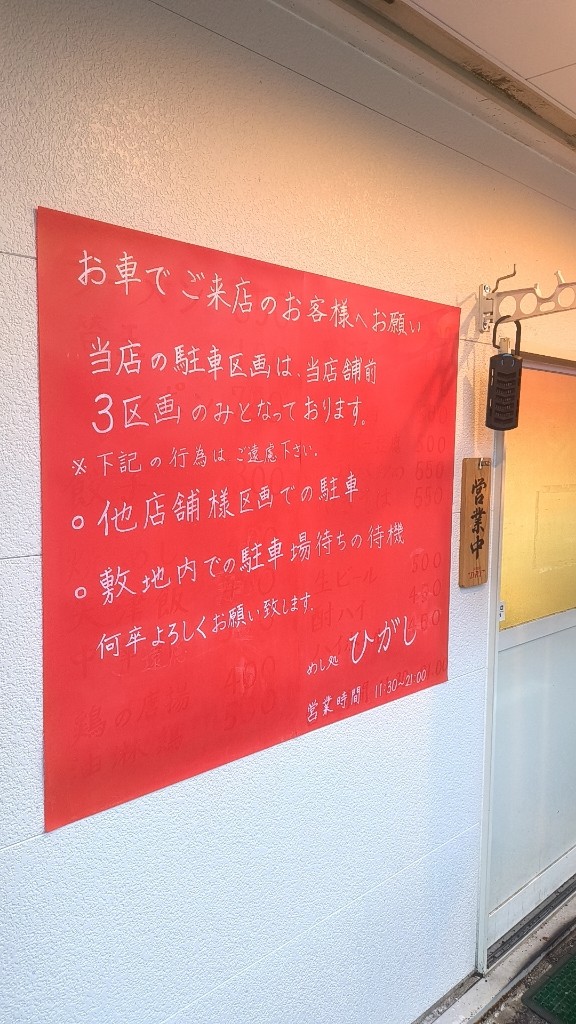 お車でご来店のお客様へお願い
当店の駐車区画は、当店舗前
3区画のみとなっております。
※下記の行為はご遠慮下さい.
○他店舗様区画での駐車
○敷地内での駐車場待ちの待機
何卒よろしくお願い致します.
めし処 ひがし
営業時間 11:30〜21:00
営業中
生ビール
酎ハイ